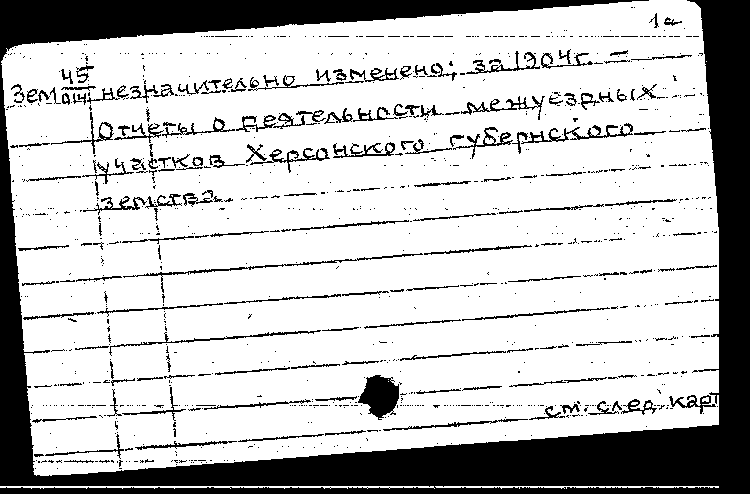 1а
Зем 45/014 незначительно изменено; за 1904г. –
Отчеты о деятельности межуездных
участков Херсонского губернского
земства.
см. след. карт